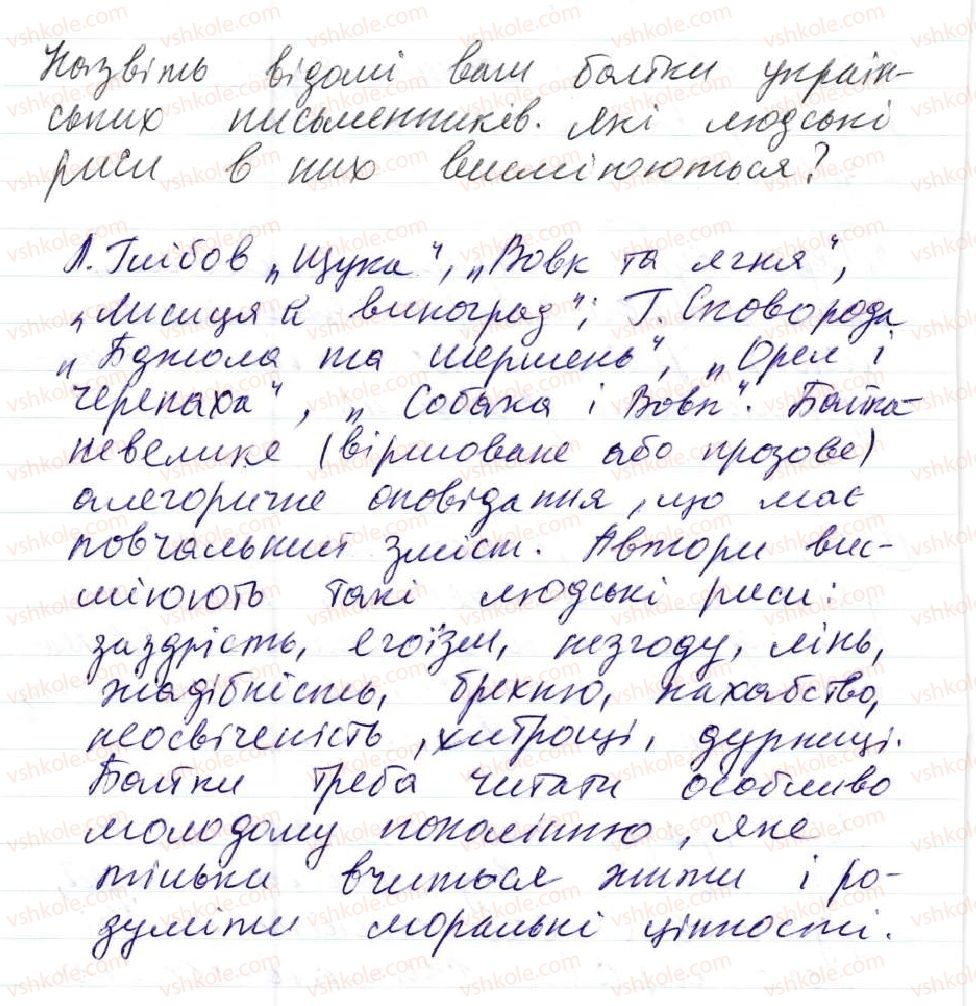 Назвіть відомі вам байки україн-
ських письменників. Які людські
риси в них висміюються?
Л. Глібов „Щука", „Вовк та ягня",
„Лисиця й виноград"; Г. Сковорода
„Бджола та шершень", „Орел і
черепаха", „Собака і Вовк". Байка-
невелике (віршоване або прозове)
алегоричне оповідання, що має
повчальний зміст. Автори вис-
міюють такі людські риси:
заздрість, егоїзм, незгоду, лінь,
жадібність, брехню, нахабство,
неосвіченість, хитрощі, дурниці.
Байки треба читати особливо
молодому поколінню, яке
тільки вчиться жити і ро-
зуміти моральні цінності.